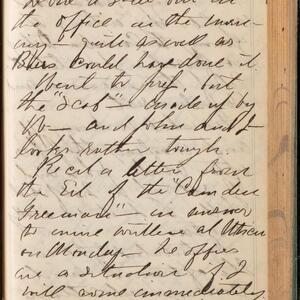 the office in the morn-
ing - quite as well as
could have done it
Went to prep. but
the "Scab" made up by
and John and I
looks rather tough.
Recd a letter from
the Ed. of the "Camden
Freeman" in answer
to mine written at Utica
on Monday - he offers
me a situation if I
will come immediately